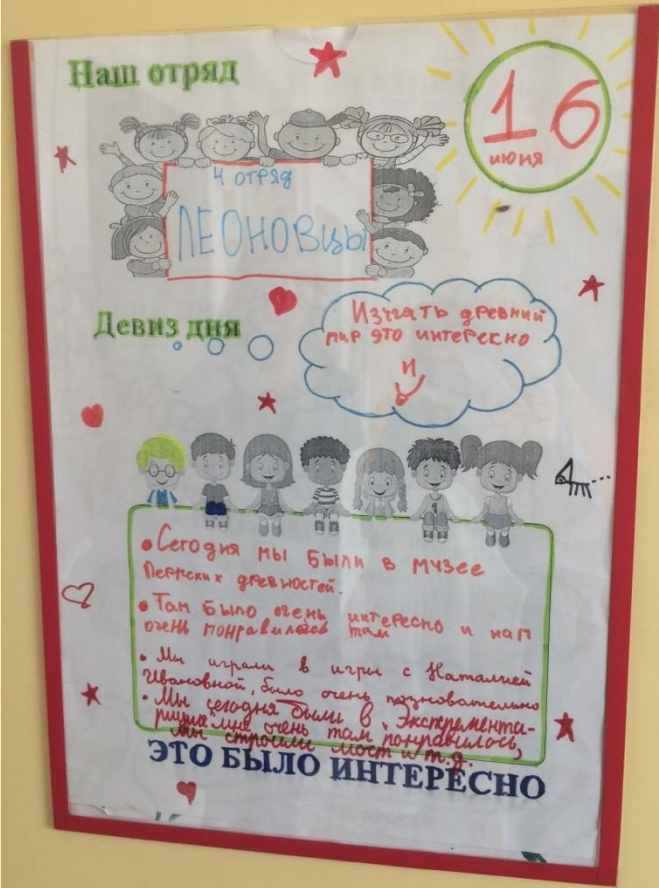 Наш отряд
16
июня
4 отряд
ЛЕОНОВцы
Девиз дня
Изучать древний
мир это интересно
• Сегодня мы были в музее
Пермских древностей.
• Там было очень интересно и нам
очень понравилось там
• Мы играли в игры с Наталией
Ивановной, было очень позновательно
• Мы сегодня были в "Эксперемента-
риуме" мне очень там понравилось,
мы строили мост и т.д.
ЭТО БЫЛО ИНТЕРЕСНО